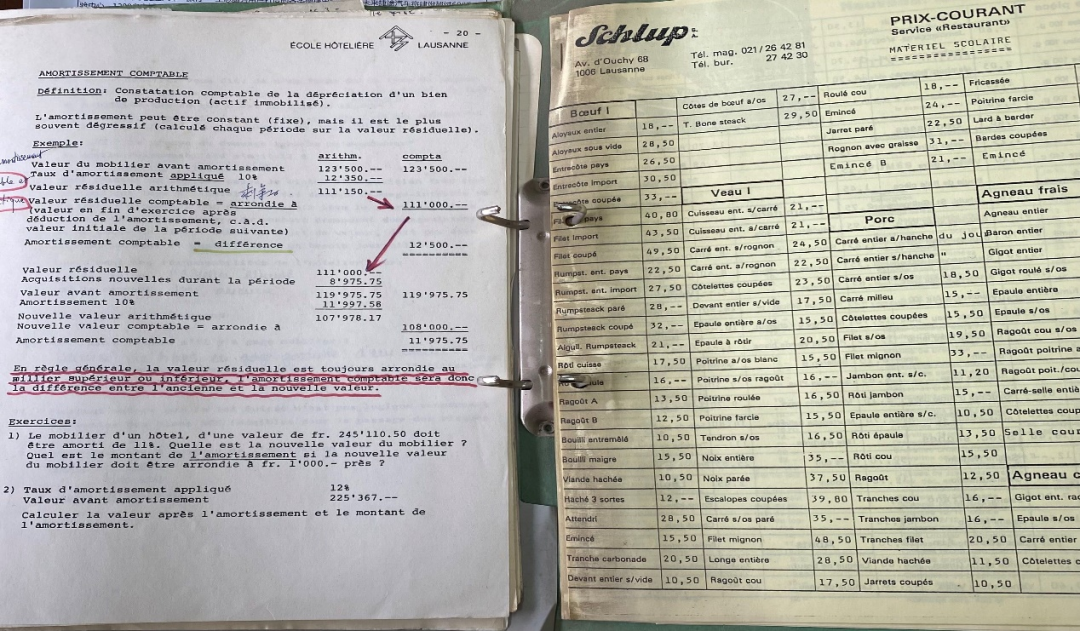 - 20 -
ÉCOLE HÔTELIÈRE LAUSANNE
AMORTISSEMENT COMPTABLE
Définition: Constatation comptable de la dépréciation d'un bien
de production (actif immobilisé).
L'amortissement peut être constant (fixe), mais il est le plus
souvent dégressif (calculé chaque période sur la valeur résiduelle).
Exemple:
arithm. compta
Valeur du mobilier avant amortissement 123'500.-- 123'500.--
Taux d'amortissement appliqué 10% 12'350.--
Valeur résiduelle arithmétique 111'150.--
Valeur résiduelle comptable = arrondie à 111'000.--
(valeur en fin d'exercice après
déduction de l'amortissement, c.à.d.
valeur initiale de la période suivante)
Amortissement comptable = différence 12'500.--
Valeur résiduelle 111'000.--
Acquisitions nouvelles durant la période 8'975.75
Valeur avant amortissement 119'975.75 119'975.75
Amortissement 10% 11'997.58
Nouvelle valeur arithmétique 107'978.17
Nouvelle valeur comptable = arrondie à 108'000.--
Amortissement comptable 11'975.75
En règle générale, la valeur résiduelle est toujours arrondie au
millier supérieur ou inférieur, l'amortissement comptable sera donc
la différence entre l'ancienne et la nouvelle valeur.
Exercices:
1) Le mobilier d'un hôtel, d'une valeur de fr. 245'110.50 doit
être amorti de 11%. Quelle est la nouvelle valeur du mobilier ?
Quel est le montant de l'amortissement si la nouvelle valeur
du mobilier doit être arrondie à fr. 1'000.- près ?
2) Taux d'amortissement appliqué 12%
Valeur avant amortissement 225'367.--
Calculer la valeur après l'amortissement et le montant de
l'amortissement.
Schlup S.A.
Av. d'Ouchy 68
1006 Lausanne
Tél. mag. 021/26 42 81
Tél. bur. 27 42 30
PRIX-COURANT
Service «Restaurant»
MATERIEL SCOLAIRE
Bœuf I
Aloyaux entier 18,--
Aloyaux sous vide 28,50
Entrecôte pays 26,50
Entrecôte import 30,50
Entrecôte coupée 33,--
Filet pays 40,80
Filet import 43,50
Filet coupé 49,50
Rumpst. ent. pays 22,50
Rumpst. ent. import 27,50
Rumpsteack paré 28,--
Rumpsteack coupé 32,--
Aiguil. Rumpsteack 21,--
Rôti cuisse 17,50
16,--
Ragoût A 13,50
Ragoût B 12,50
Bouilli entremêlé 10,50
Bouilli maigre 15,50
Viande hachée 10,50
Haché 3 sortes 12,--
Attendri 28,50
Emincé 15,50
Tranche carbonade 20,50
Devant entier s/vide 10,50
Côtes de bœuf a/os 27,--
T. Bone steack 29,50
Veau I
Cuisseau ent. s/carré 21,--
Cuisseau ent. a/carré 21,--
Carré ent. s/rognon 24,50
Carré ent. a/rognon 22,50
Côtelettes coupées 23,50
Devant entier s/vide 17,50
Epaule entière a/os 15,50
Epaule à rôtir 20,50
Poitrine a/os blanc 15,50
Poitrine s/os ragoût 16,--
Poitrine roulée 16,50
Poitrine farcie 15,50
Tendron s/os 16,50
Noix entière 35,--
Noix parée 37,50
Escalopes coupées 39,80
Carré s/os paré 35,--
Filet mignon 48,50
Longe entière 28,50
Ragoût cou 17,50
Roulé cou 18,--
Emincé 24,--
Jarret paré 22,50
Rognon avec graisse 31,--
Emincé B 21,--
Porc
Carré entier a/hanche du jou
Carré entier s/hanche "
Carré entier s/os 18,50
Carré milieu 15,--
Côtelettes coupées 15,50
Filet s/os 19,50
Filet mignon 33,--
Jambon ent. s/c. 11,20
Rôti jambon 15,--
Epaule entière s/c. 10,50
Rôti épaule 13,50
Rôti cou 15,50
Ragoût 12,50
Tranches cou 16,--
Tranches jambon 16,--
Tranches filet 20,50
Viande hachée 11,50
Jarrets coupés 10,50
Fricassée
Poitrine farcie
Lard à barder
Bardes coupées
Emincé
Agneau frais
Agneau entier
Baron entier
Gigot entier
Gigot roulé s/os
Epaule entière
Epaule s/os
Ragoût cou s/os
Ragoût poitrine a
Ragoût poit./cou
Carré-selle entiè
Côtelettes coup
Selle cou
Agneau c
Gigot ent. rac
Epaule s/os
Carré entier
Côtelettes c